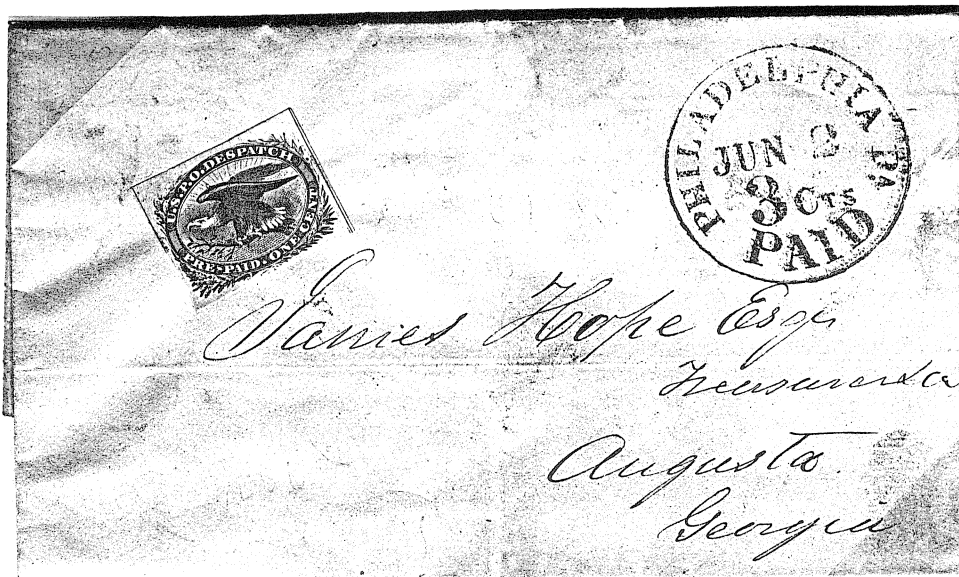 U.S.P.O. DESPATCH
PRE-PAID. ONE CENT.
PHILADELPHIA Pa.
JUN 2
3 CTS
PAID
James Hope Esqr
Treasurer &c
Augusta.
Georgia